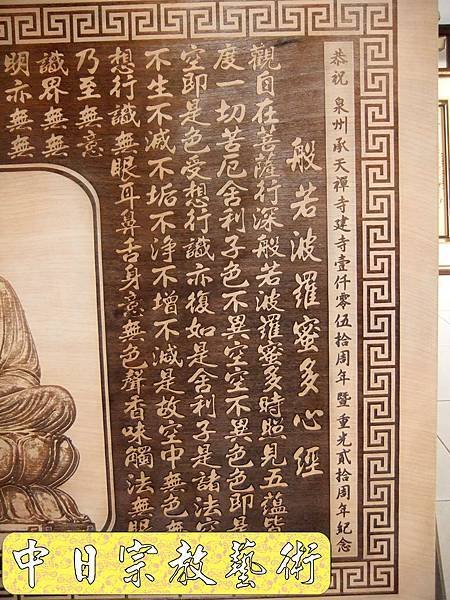 恭祝 泉州承天禪寺建寺壹仟零伍拾周年 暨 重光貳拾周年紀念
般若波羅蜜多心經
觀自在菩薩行深般若波羅蜜多時照見五蘊皆
度一切苦厄舍利子色不異空空不異色色即是
空即是色受想行識亦復如是舍利子是諸法空
不生不滅不垢不淨不增不減是故空中無色無
想行識無眼耳鼻舌身意無色聲香味觸法無眼
乃至無意
識界無無
明亦無無
中日宗教藝術